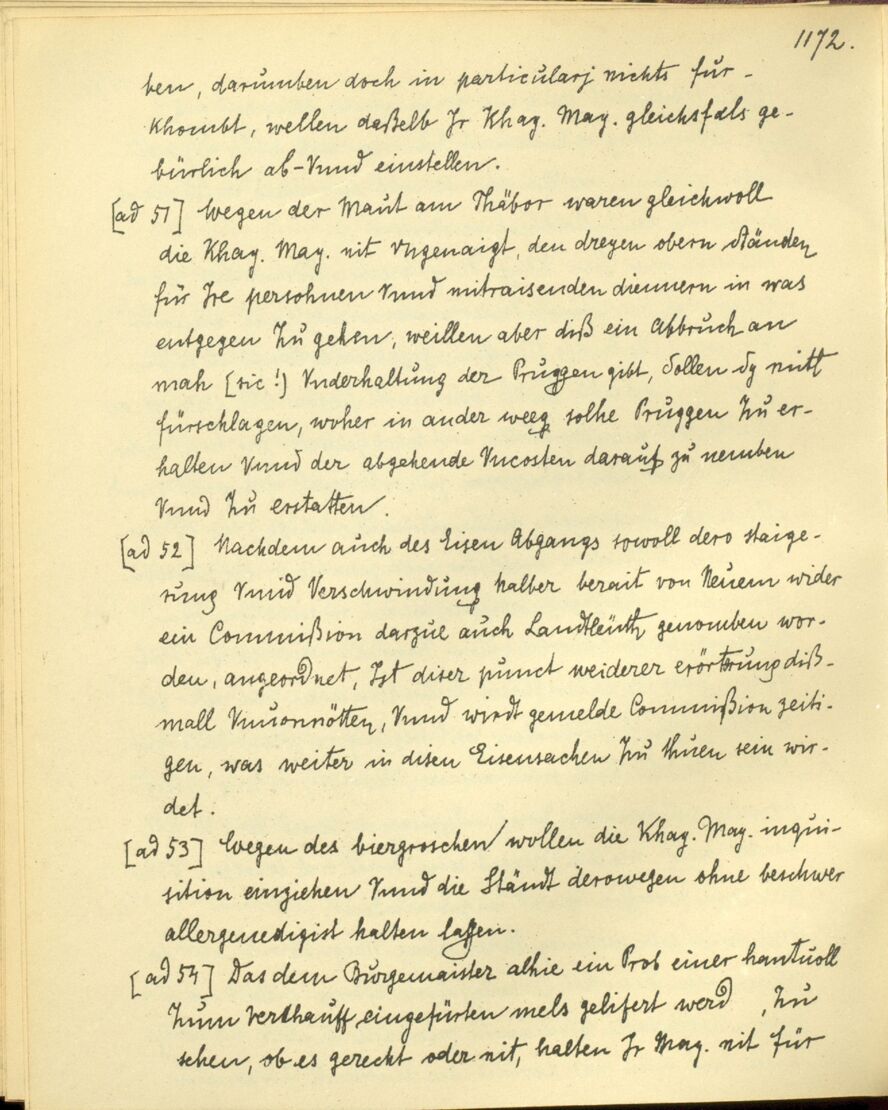 1172.
ben, darumben doch in particularj nichts für-
khombt, wellen daßelb Ir Khay. May. gleichsfals ge-
bürlich ab-Vnnd einstellen.
[ad 51] Wegen der Maut am Thäbor waren gleichwoll
die Khay. May. nit vngenaigt, den dreyen obern Ständen
für Ire persohnen Vnnd mitraisenden diennern in was
entgegen Zu gehen, weillen aber diß ein Abbruch an
mah [sic!) Vnderhaltung der Pruggen gibt, Sollen Sy mitl
fürschlagen, woher in ander weeg solhe Pruggen Zu er-
halten Vnnd der abgehende Vncosten darauf zu nemben
Vnnd Zu erstatten.
[ad 52] Nachdem auch des Eisen Abgangs sowoll dero staige-
rung Vnnd Verschwindung halber berait von Neuem wider
ein Commißion darzue auch Landtleüth genomben wor-
den, angeordnet, Ist diser punct weiderer erörtrung diß-
mall Vnuonnötten, Vnnd wirdt gemelde Commißion zeiti-
gen, was weiter in disen Eisensachen Zu thuen sein wir-
det.
[ad 53] Wegen des biergroschen wollen die Khay. May. inqui-
sition einziehen Vnnd die Ständt derowegen ohne beschwer
allergenedigist halten laßen.
[ad 54] Das dem Burgemaister alhie ein Prob einer hantuoll
Zum Verkhauff eingefürten mels gelifert werd, Zu
sehen, ob es gerecht oder nit, halten Ir May. nit für